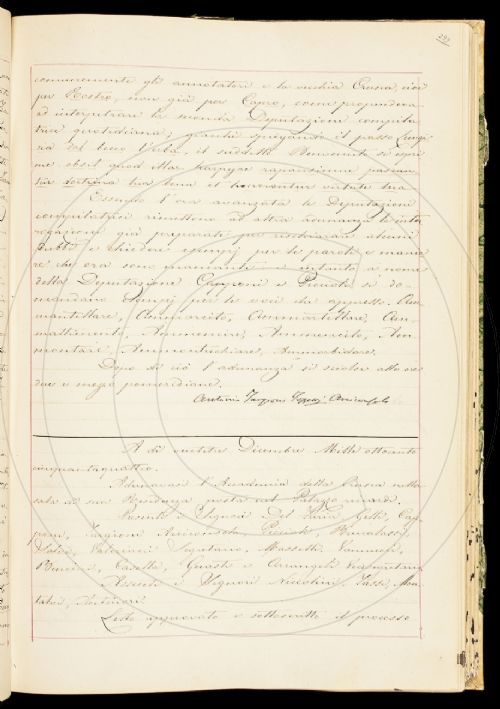 comunemente gli annotatori e la vecchia Crusca, cioè
per Rostro, non già per Capro, come propendeva
ad interpretare la seconda Deputazione compila-
trice quotidiana; giacchè spiegando il passo
del suo il suddetto Benvenuto si espri-
me obsit quod illae harpyae rapuissent
tua bona et virtute tua
Essendo l'ora avanzata le Deputazioni
compilatrici rimettono ad altra adunanza le inter-
rogazioni già preparate per rischiarare alcuni
dubbi e chiedere esempj per le parole e manie-
re che ora sono mancanti e intanto a nome
della Deputazione Capponi e Pienchi si do-
mandano Esempj per le voci che appresso. Am-
mantellare, Ammarcito, Ammartellare, Am-
mattimento, Ammencire, Ammencito, Am-
montare, Ammonticchiare, Ammorbidare.
Dopo di ciò l'adunanza si sciolse alle ore
due e mezzo pomeridiane.
Antonio Targioni Tozzetti Arciconsolo
A dì ventisei Dicembre Mille ottocento
cinquantaquattro.
Adunavasi l'Accademia della Crusca nella
sala di sua Residenza posta nel Palazzo
Presenti i Signori Del Furia, Gelli, Cap-
poni, Targioni Arciconsolo, Pienchi, Brucalassi,
Salvi, Valeriani Segretario, Massetti, Vannucci,
Bencini, Casella, Guasti e Arcangeli
Assenti i Signori Niccolini, Tassi, Mon-
talvi,
Letto approvato e sottoscritto il processo